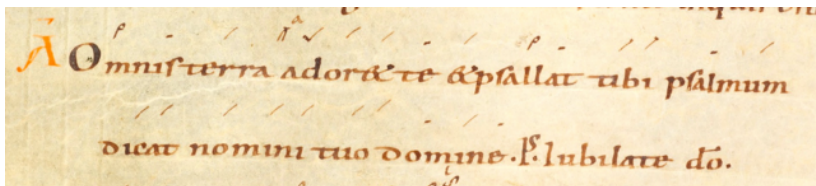 Ā Omnis terra adoret te & psallat tibi psalmum
dicat nomini tuo domine. Ps. Iubilate dō.